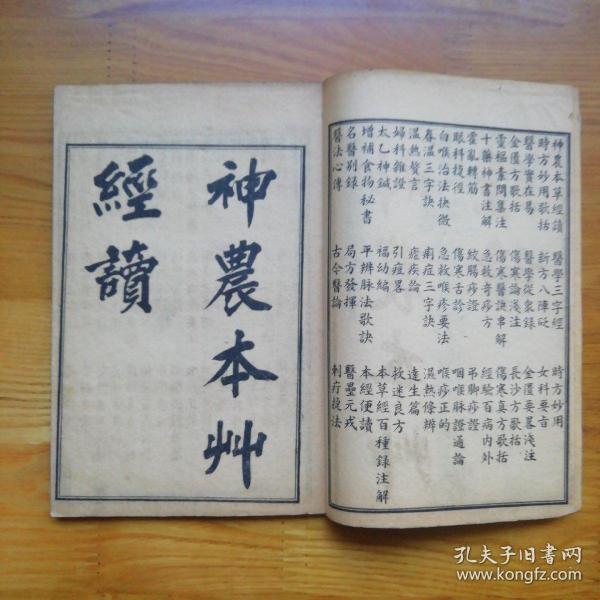 神農本草經讀 醫學三字經 時方妙用
時方妙用歌括 新方八陣砭 女科要旨
醫學實在易 醫學從衆錄 金匱要畧淺注
金匱方歌括 傷寒論淺注 長沙方歌括
靈樞素問集注 傷寒醫訣串解 傷寒真方歌括
十藥神書注解 急救奇痧方 經驗百病內外
霍亂轉筋 絞腸痧證 吊脚痧證
眼科捷徑 傷寒舌診 咽喉脉證通論
白喉治法抉微 急救喉疹要法 喉痧正的
春溫三字訣 痢症三字訣 濕熱條辨
溫熱贅言 瘧疾論 達生篇
婦科雜證 引痘畧 救迷良方
太乙神鍼 福幼編 本草經百種錄注解
增補食物秘書 平辨脉法歌訣 本經便讀
名醫別錄 局方發揮 醫壘元戎
醫法心傳 古今醫論 刺疔捷法
神農本艸
經讀
孔夫子旧書网
www.kongfz.com